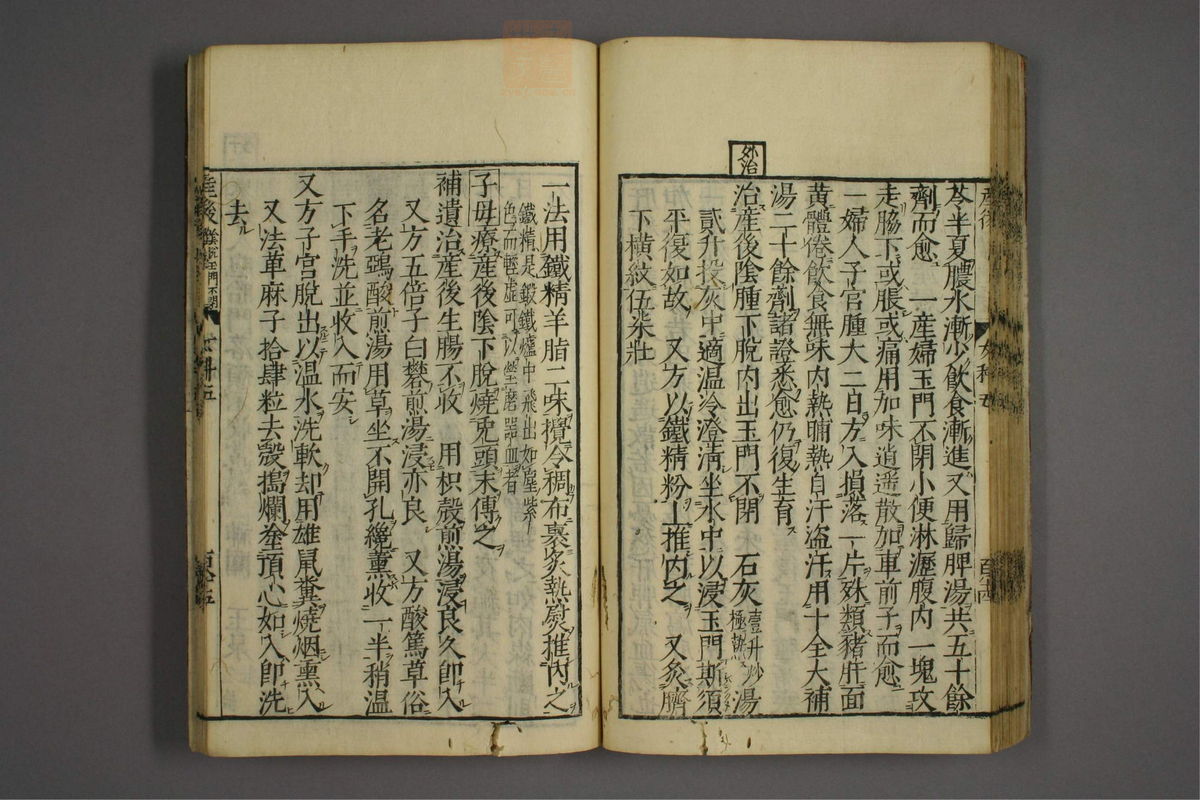 外治
芩半夏膿水漸少飲食漸進又用歸脾湯共五十餘
劑而愈 一產婦玉門不閉小便淋瀝腹内一塊攻
走脇下或脹或痛用加味逍遥散加車前子而愈
一婦人子宮腫大二日方入損落一片殊類豬肝面
黃體倦飲食無味内熱晡熱自汗盜汗用十全大補
湯二十餘劑諸證悉愈仍復生育
治產後陰腫下脫肉出玉門不閉 石灰壹升炒極熱湯
貳升投灰中適温冷澄淸坐水中以浸玉門斯須
平復如故 又方以鐵精粉上推内之 又灸臍
下橫紋伍柒壯
一法用鐵精羊脂二味攪令稠布裹炙熱熨推内之
鐵精是鍜鐵爐中飛出如塵紫
色而輕虚可以瑩磨噐皿者
子母療產後陰下脫燒兎頭末傅之
補遺治產後生腸不收 用枳殼煎湯浸良久卽入
又方五倍子白礬煎湯浸亦良 又方酸篤草俗
名老鵶酸煎湯用草坐不開孔纔薰收一半稍温
下手洗並收入而安
又方子宮脫出以温水洗軟却用雄鼠糞燒烟熏入
又法萆麻子拾肆粒去殼擣爛塗頂心如入卽洗
去
產後
女科五